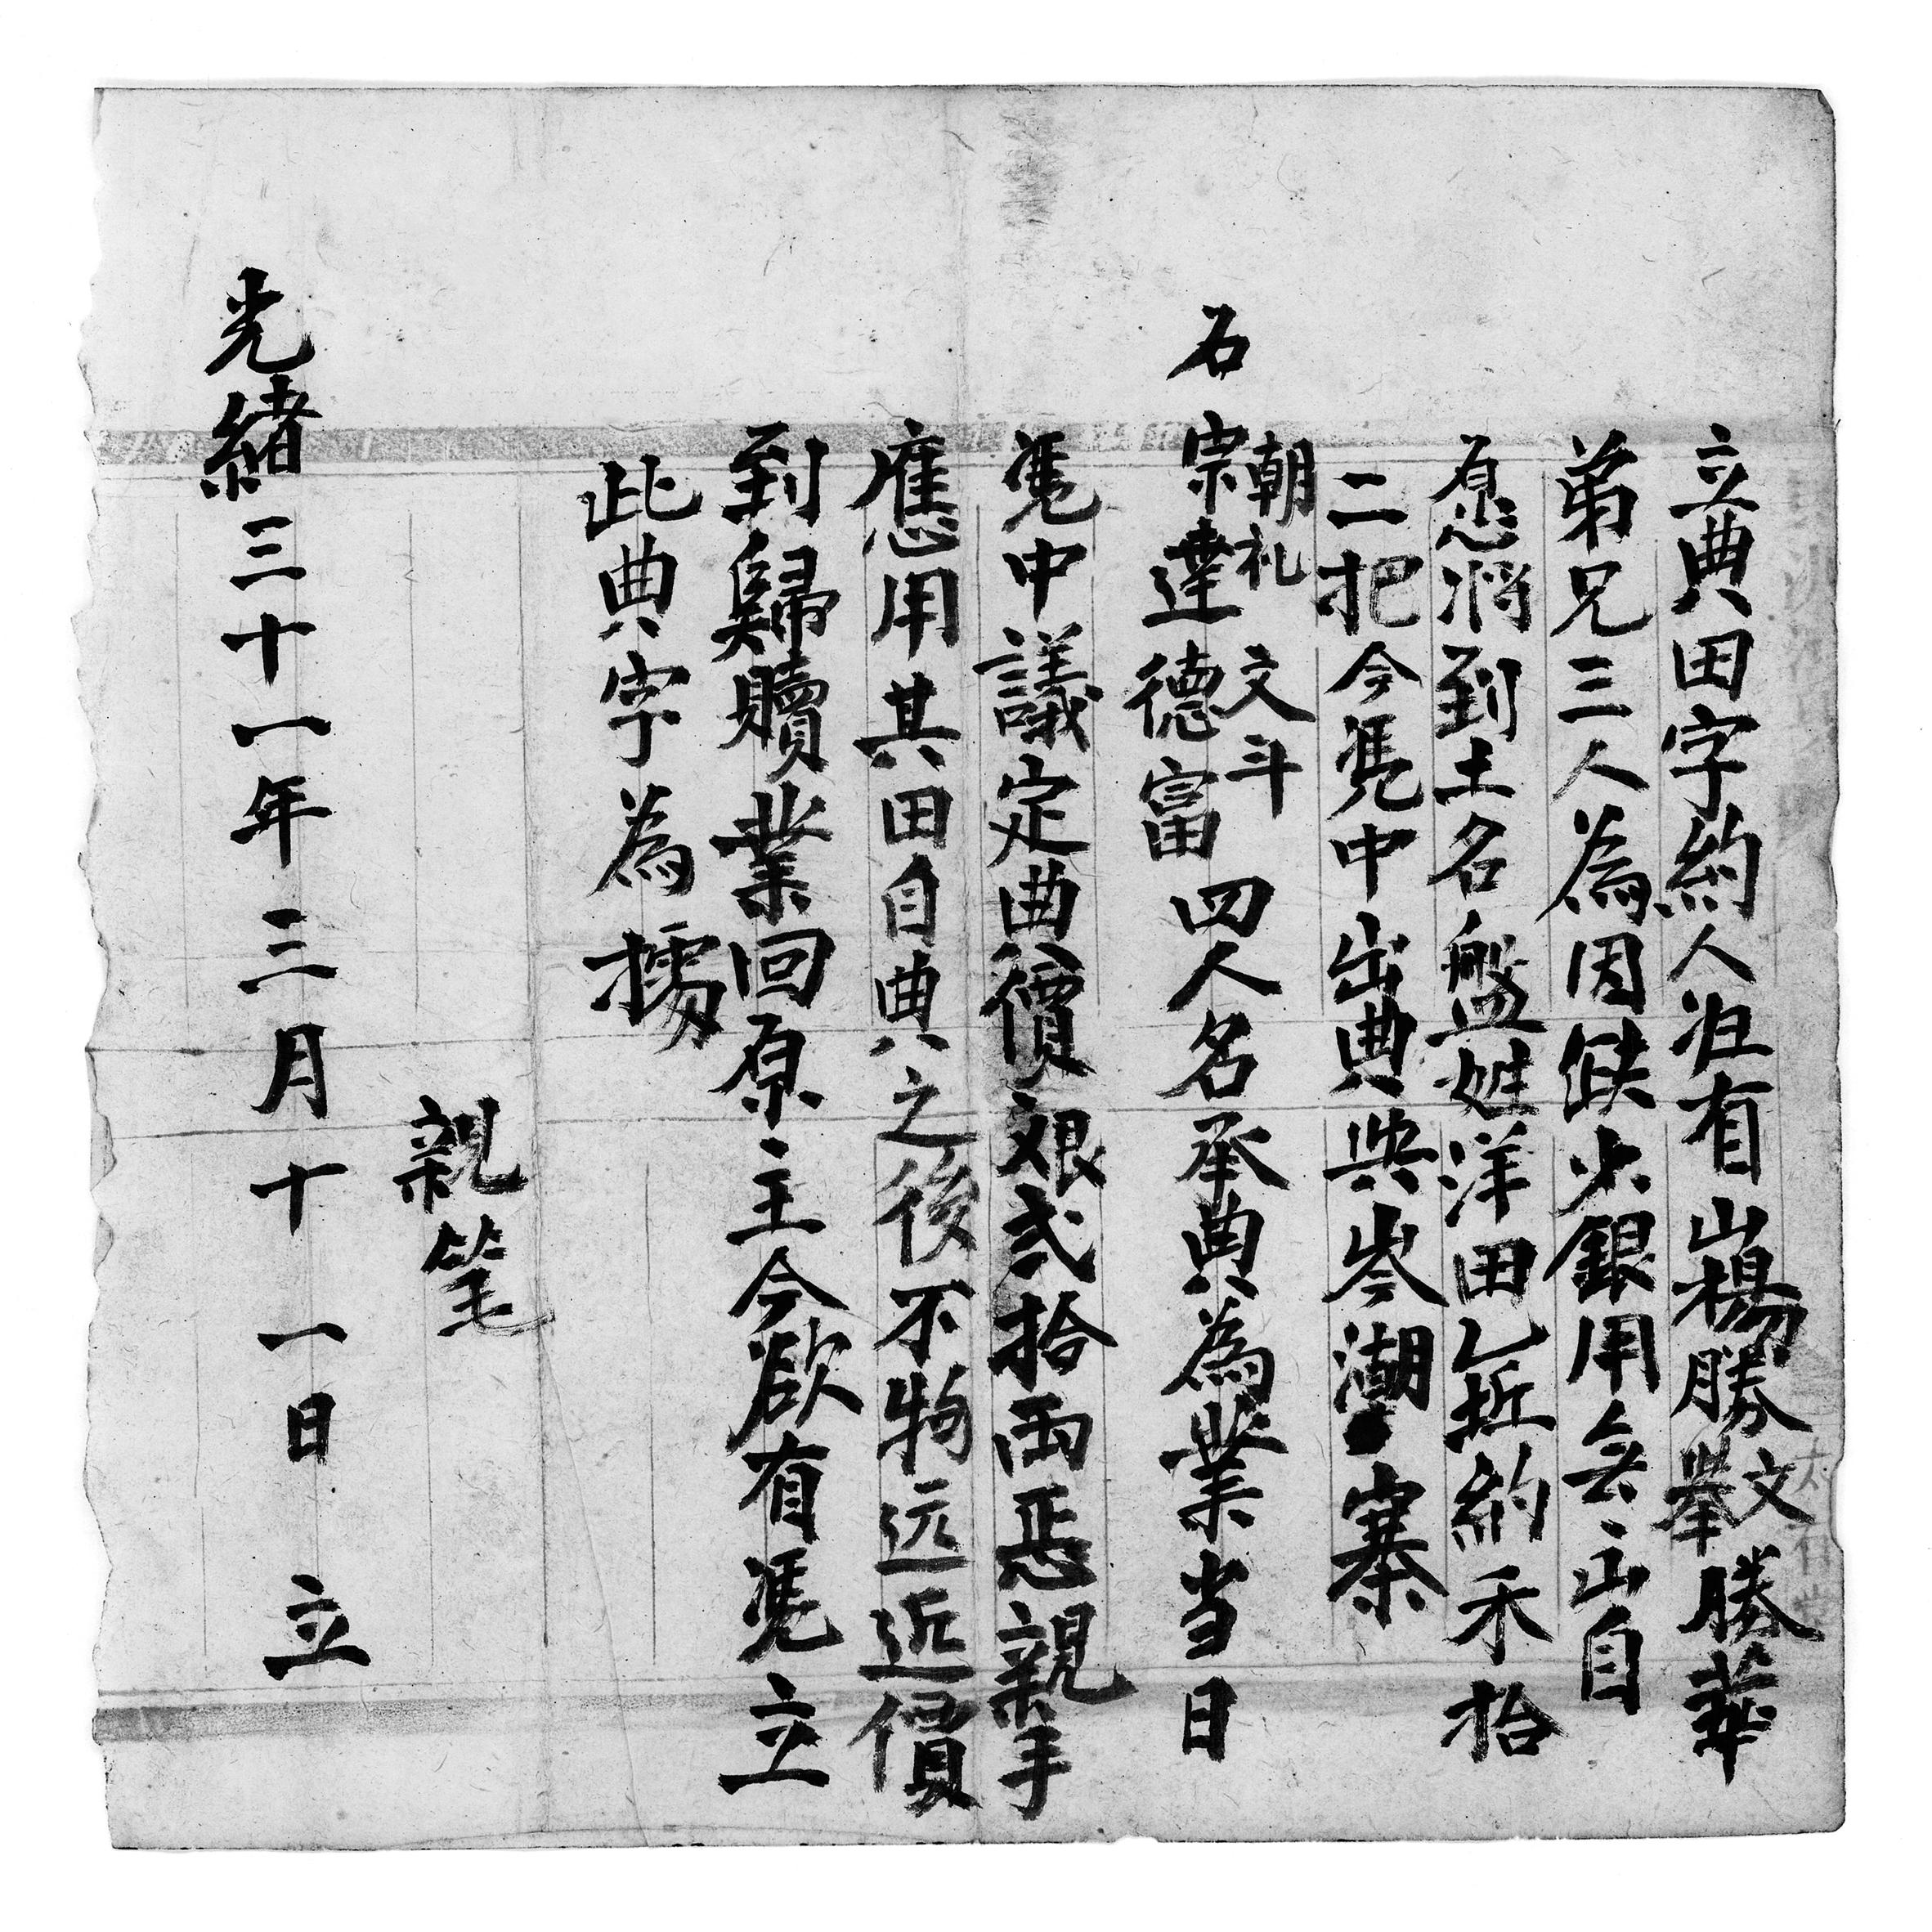 立典田字約人㱕有山楊勝文舉勝華
弟兄三人為因缺少銀用無山自
愿將到土名盤姓洋田乙坵約禾拾
二把今凴中出典與岑潮寨
石朝礼宗達文斗德富四人名承典為業当日
凴中議定典價艮弍拾両忢親手
應用其田自典之後不拘远近價
到歸贖業回原主今欲有凴立
此典字為據
親笔
光緒三十一年三月十一日立